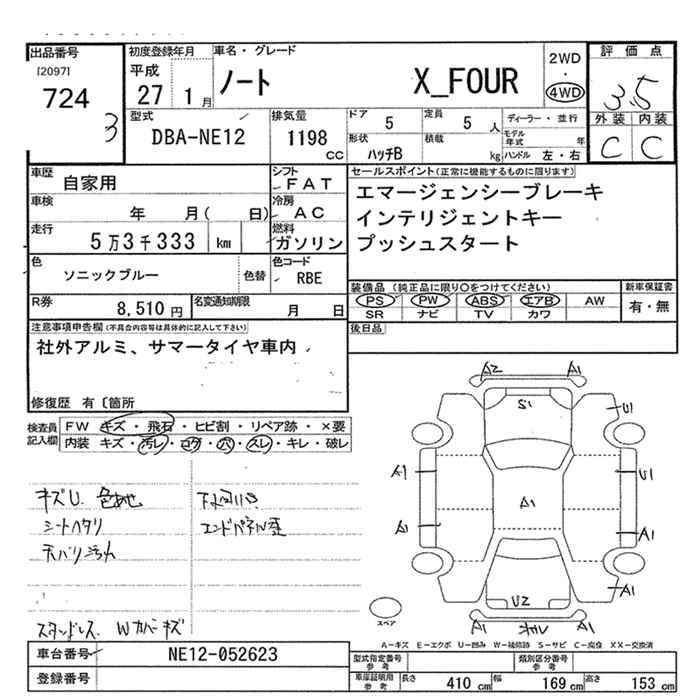 出品番号
[2097]
724
3
初度登録年月
平成
27 1月
車名・グレード
ノート X_FOUR
2WD
・
4WD
評価点
3.5
外装 内装
C C
型式
DBA-NE12
排気量
1198
cc
ドア
5
定員
5 人
形状
ハッチB
積載
kg
ディーラー・並行
モデル年式 年
ハンドル 左・右
車歴
自家用
シフト
FAT
車検
年 月( 日)
冷房
AC
走行
5万3千333 km
燃料
ガソリン
色
ソニックブルー
色替
色コード
RBE
R券
8,510円
名変通知期限
月 日
セールスポイント(正常に機能するものに限ります)
エマージェンシーブレーキ
インテリジェントキー
プッシュスタート
装備品(純正品に限り○をつけてください)
新車保証書
PS PW ABS エアB AW
SR ナビ TV カワ
有・無
後日品
注意事項申告欄(不具合内容等は具体的に記入して下さい)
社外アルミ、サマータイヤ車内
修復歴 有〔箇所
検査員記入欄
FW キズ・飛石・ヒビ割・リペア跡・×要
内装 キズ・汚レ・コゲ・穴・スレ・キレ・破レ
キズU. 色あせ
シートヘタリ
天バリジみ
下回りサビ
エンドパネル歪
スタッドレス Wカバーキズ
A2 A1
S1
U1
A1
U1
A1
A1
A1
A1
U2
A1
A1
スペア
A-キズ E-エクボ U-凹み W-補修跡 S-サビ C-腐食 XX-交換済
車台番号
NE12-052623
登録番号
型式指定番号
参考
類別区分番号
参考
車庫証明用
参考
長さ 410cm 幅 169cm 高さ 153cm